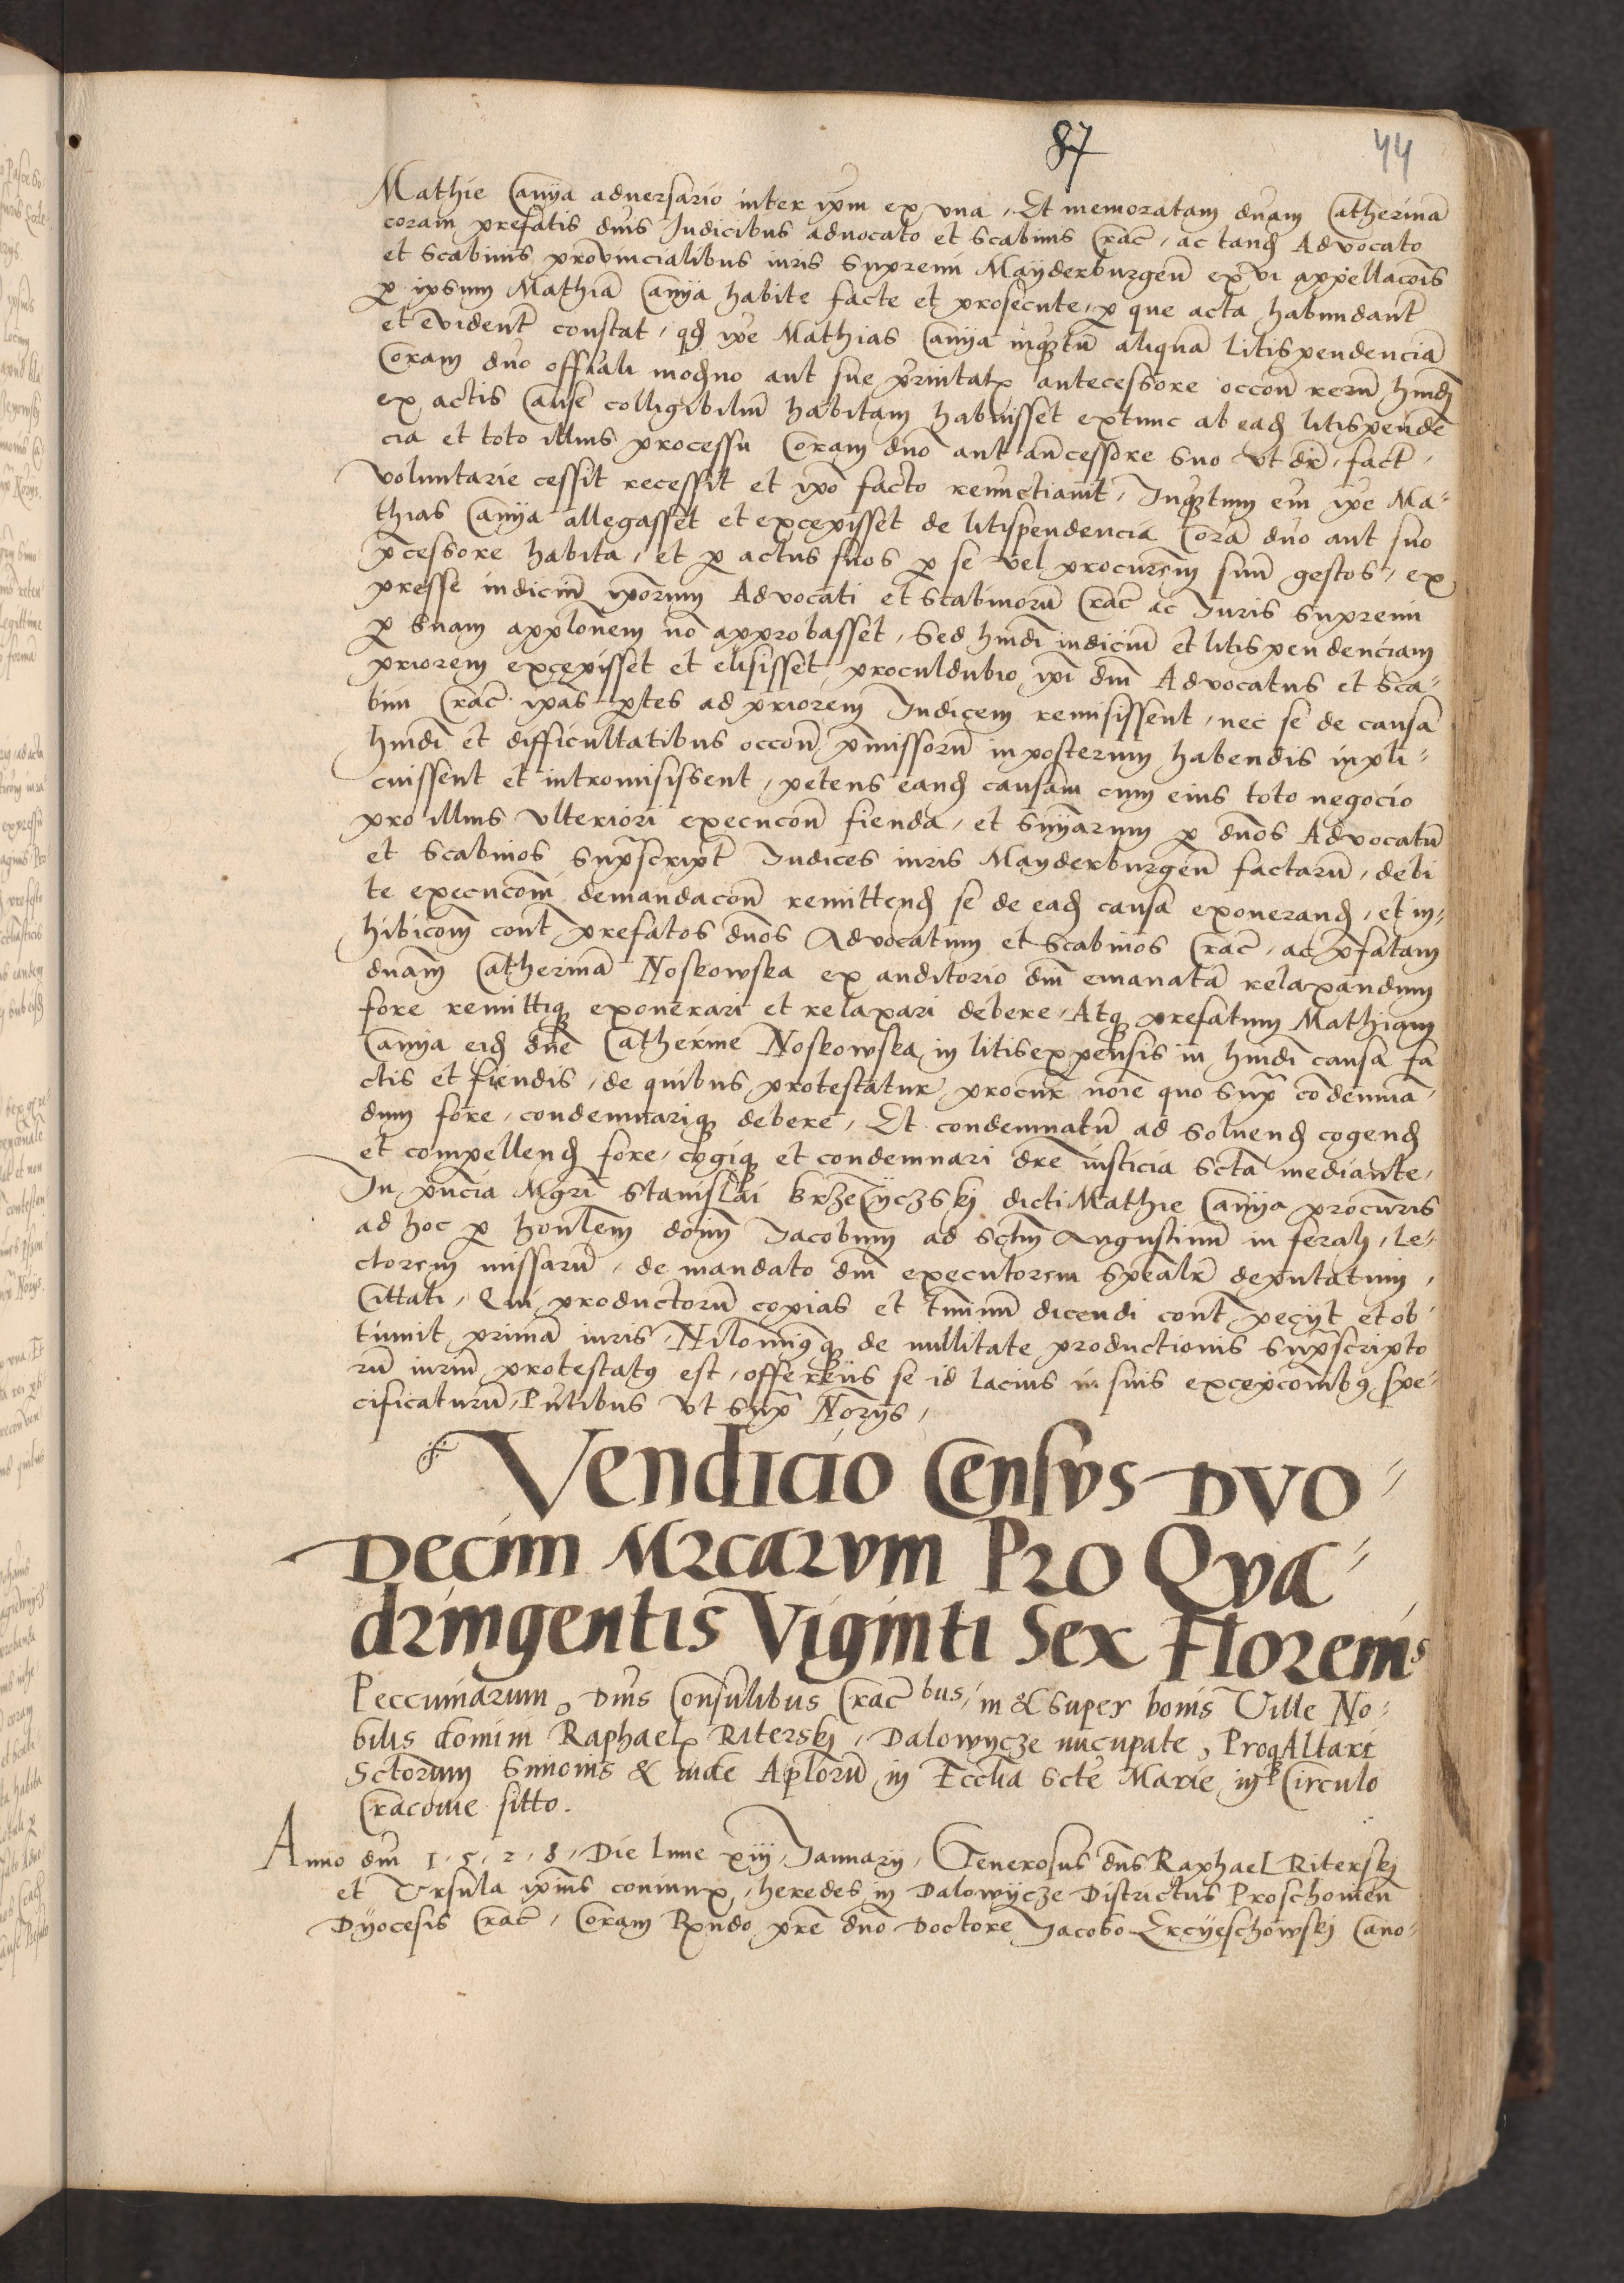 87 44
Mathie Canya adversario inter ipm ex vna, Et memoratam dnam Catherinā
coram prefatis dnis Iudicibus advocato et scabinis Crac̄, ac tandē Advocato
et scabinis provincialibus iuris supremi Mayderburgeñ ex vi appellacōis
p ipsum Mathiā Canya habite facte et prosecute, p que acta habundant̄
et evident̄ constat, qd ipe Mathias Canya inqtū aliquā litispendenciā
Coram dno officiali moderno aut sue antecessore occōne rerū hmdi
ex actis Cause colligibiliū habitam habuisset extunc ab eadē litispendē
cia et toto illius processu Coram dno aut añcessore suo vt dr̄, fact̄,
voluntarie cessit recessit et ipo facto renūctiavit, Inqtum em̄ ipe Ma-
thias Canya allegasset et excepisset de litispendencia Corā dno aut suo
p̄cessore habita, et p actus suos p se vel procur̄em suū gestos, ex
presse iudiciū ipōrum Advocati et scabinorū Crac̄ ac Iuris supremi
p suam applōnem nō approbasset, Sed hmdi iudiciū et litispendenciam
priorem excepisset et elisisset, proculdubio ipi dni Advocatus et sca-
bini Crac̄ ipas ptes ad priorem Iudicem remisissent, nec se de causa
hmdi et difficultatibus occōne p̄missorū inposterum habendis inpli-
cuissent et intromisissent, petens eandē causam cum eius toto negocio
pro illius vlteriori execucōne fienda, et sniarum p dnos Advocatū
et scabinos supscript̄ Iudices iuris Mayderburgeñ factarū, debi
te execucōni demandacōne remittendā se de eadē causa exonerandā, et in-
hibicōm cont̄ prefatos dnos Advocatum et scabinos Crac̄, ac p̄fatam
dnam Catherinā Noskowska ex auditorio dni emanatā relaxandum
fore remittiq exonerari et relaxari debere, Atq prefatum Mathiam
Canya eidē dne Catherine Noskowska in litisexpensis in hmdi causa fa
ctis et fiendis, de quibus protestatur procur̄ noīe quo supra condemnā-
dum fore, condemnariq debere, Et condemnatū ad solvendū cogendū
et compellendū fore, cogiq et condemnari dre iusticia scta mediante,
In pn̄cia Mgri Stanislai dicti Mathie Canya procur̄is
ad hoc p honlem dom̄ Iacobum ad sctm Augustinū in ferali, le-
ctorem missarū, de mandato dni executorem spealr̄ deputatum,
Cittati, Qui productorū copias et tm̄inū dicendi cont̄ peciyt et ob-
tinuit primā iuris, Nilominq de nullitate productionis supscripto
rū iuriū protestatq est, offerens se id lacius in suis excepcōnibq spe-
cificaturū, Pn̄tibus vt supra Norys,
Vendicio Censvs DVO-
Decim Mrcarvm Pro Qva-
dringentis Viginti Sex Florenis
Peccuniarum, Dnis Consulibus Crac̄bus, in & super bonis Ville No-
bilis domini Raphaelis Riterskj, Dalowycze nūcupate, Proq Altari
Sctorum Simonis & iude Aplorū in Ecclīa Scte Marie in Circulo
Cracovie sitto.
Anno dni 1.5.2.8, Die lune xiij, January, Generosus dns Raphael Riterskj
et Vrsula ipius coniunx, heredes in Dalowycze Districtus Proschovień
Dyocesis Crac̄, Coram Rndo p̄re dno Doctore Iacobo Ercyeschowskj Cano-